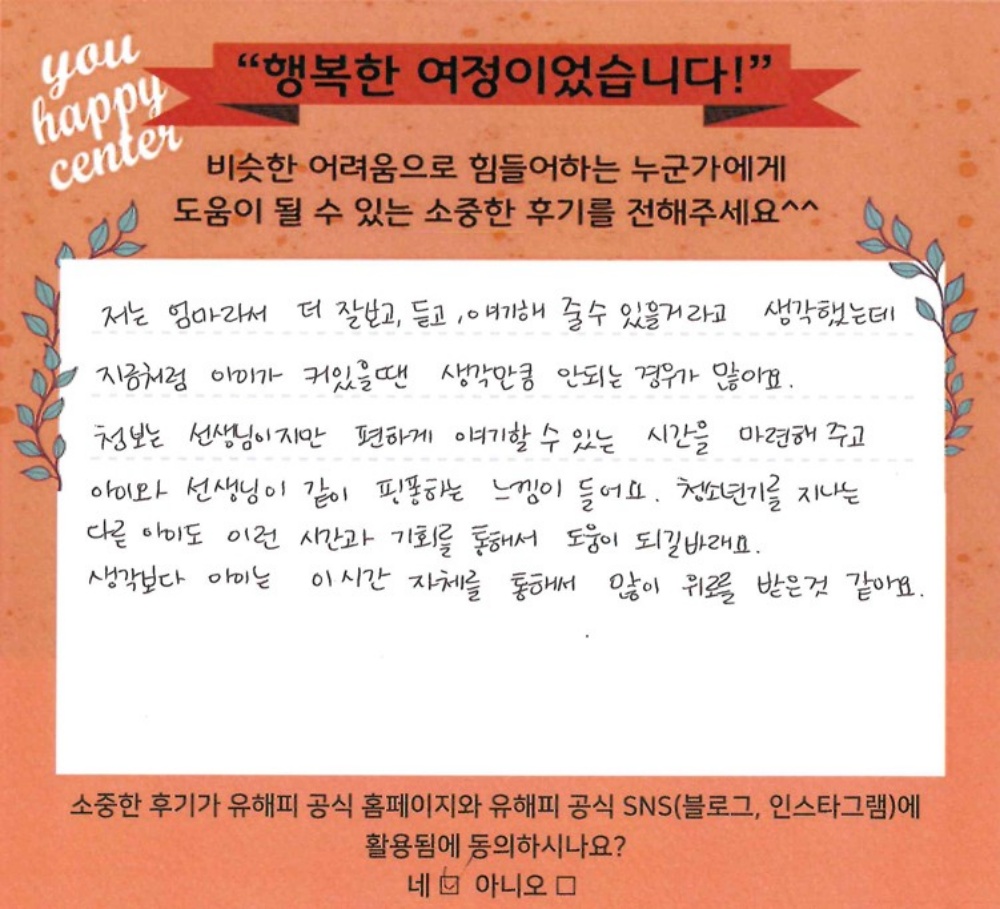 you
happy
center
“행복한 여정이었습니다!”
비슷한 어려움으로 힘들어하는 누군가에게
도움이 될 수 있는 소중한 후기를 전해주세요^^
저는 엄마라서 더 잘보고, 듣고, 얘기해 줄수 있을거라고 생각했는데
지금처럼 아이가 커있을땐 생각만큼 안되는 경우가 많아요.
첨보는 선생님이지만 편하게 얘기할 수 있는 시간을 마련해 주고
아이와 선생님이 같이 핀퐁하는 느낌이 들어요. 청소년기를 지나는
다른 아이도 이런 시간과 기회를 통해서 도움이 되길바래요.
생각보다 아이는 이 시간 자체를 통해서 많이 위로를 받은것 같아요.
소중한 후기가 유해피 공식 홈페이지와 유해피 공식 SNS(블로그, 인스타그램)에
활용됨에 동의하시나요?
네 ☑ 아니오 □